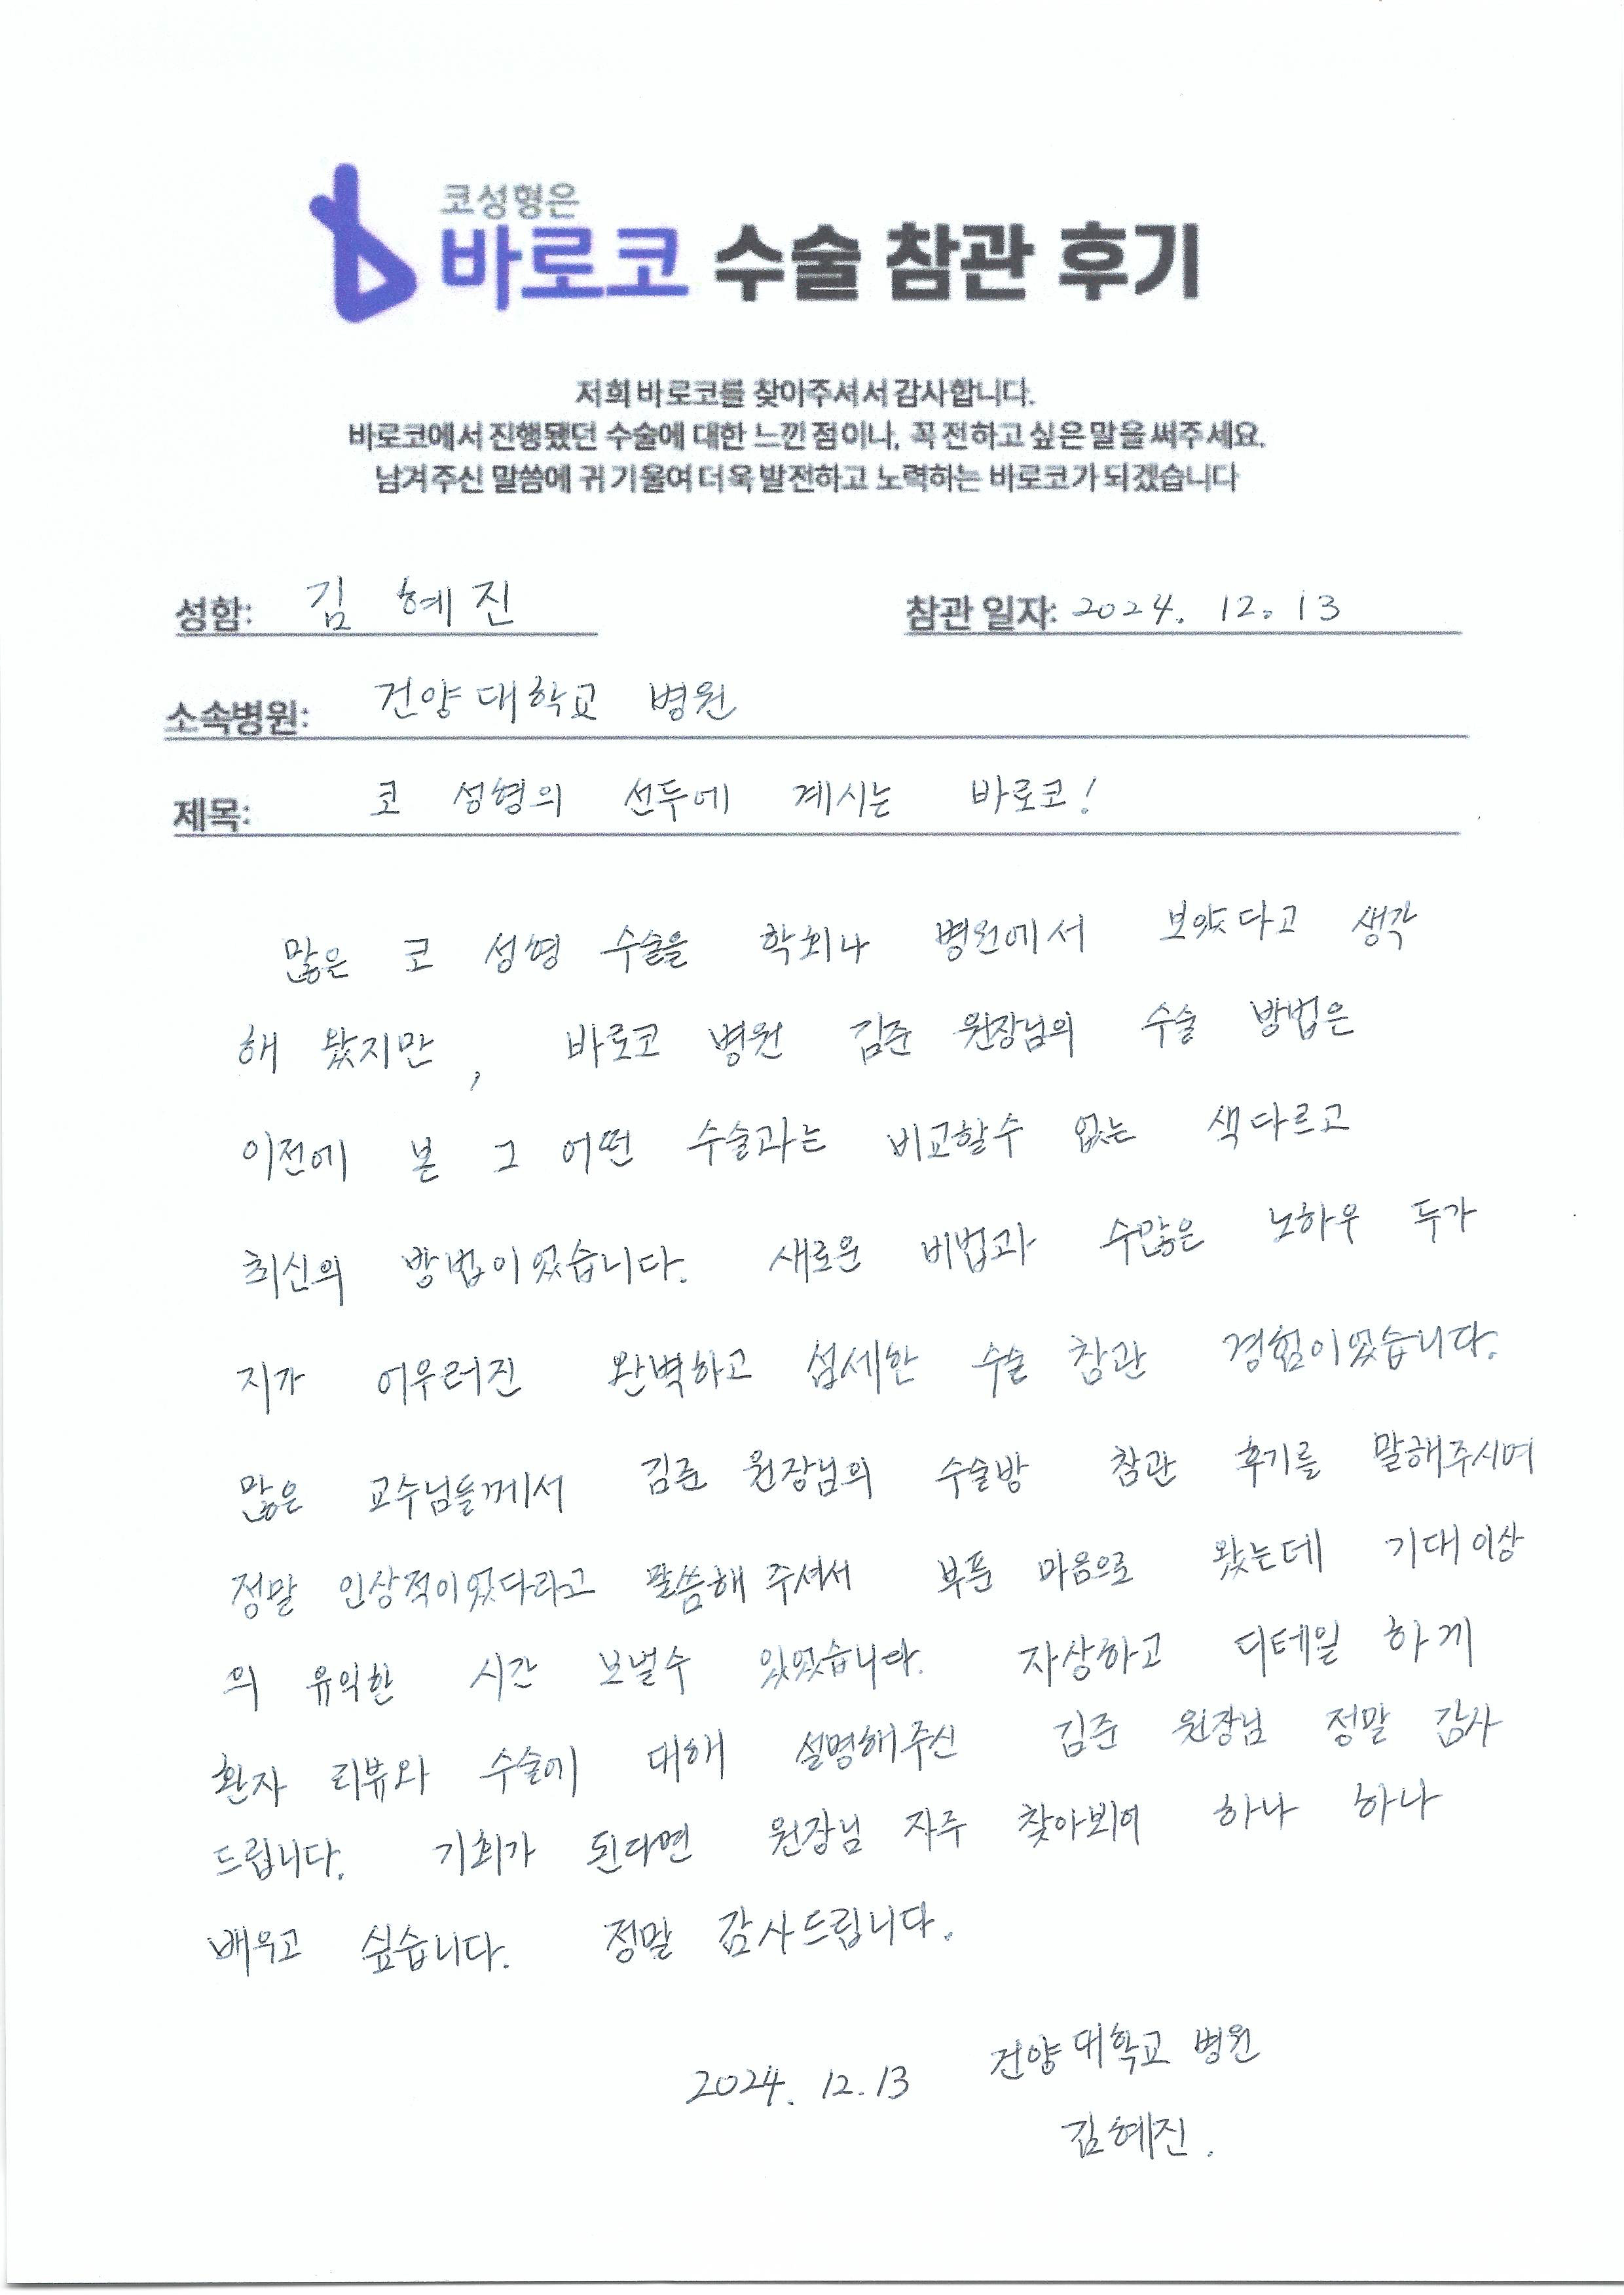 코성형은
바로코 수술 참관 후기
저희 바로코를 찾아주셔서 감사합니다.
바로코에서 진행됐던 수술에 대한 느낀 점이나, 꼭 전하고 싶은 말을 써주세요.
남겨주신 말씀에 귀 기울여 더욱 발전하고 노력하는 바로코가 되겠습니다
성함: 김 혜진
참관 일자: 2024. 12. 13
소속병원: 건양대학교 병원
제목: 코 성형의 선두에 계시는 바로코!
많은 코 성형 수술을 학회나 병원에서 보았다고 생각
해 왔지만, 바로코 병원 김준 원장님의 수술 방법은
이전에 본 그 어떤 수술과는 비교할수 없는 색다르고
최신의 방법이었습니다. 새로운 비법과 수많은 노하우 두가
지가 어우러진 완벽하고 섬세한 수술 참관 경험이었습니다.
많은 교수님들께서 김준 원장님의 수술방 참관 후기를 말해주시며
정말 인상적이었다라고 말씀해 주셔서 부푼 마음으로 왔는데 기대 이상
의 유익한 시간 보낼수 있었습니다. 자상하고 디테일 하게
환자 리뷰와 수술에 대해 설명해주신 김준 원장님 정말 감사
드립니다. 기회가 된다면 원장님 자주 찾아뵈어 하나 하나
배우고 싶습니다. 정말 감사드립니다.
2024. 12. 13 건양대학교 병원
김혜진.